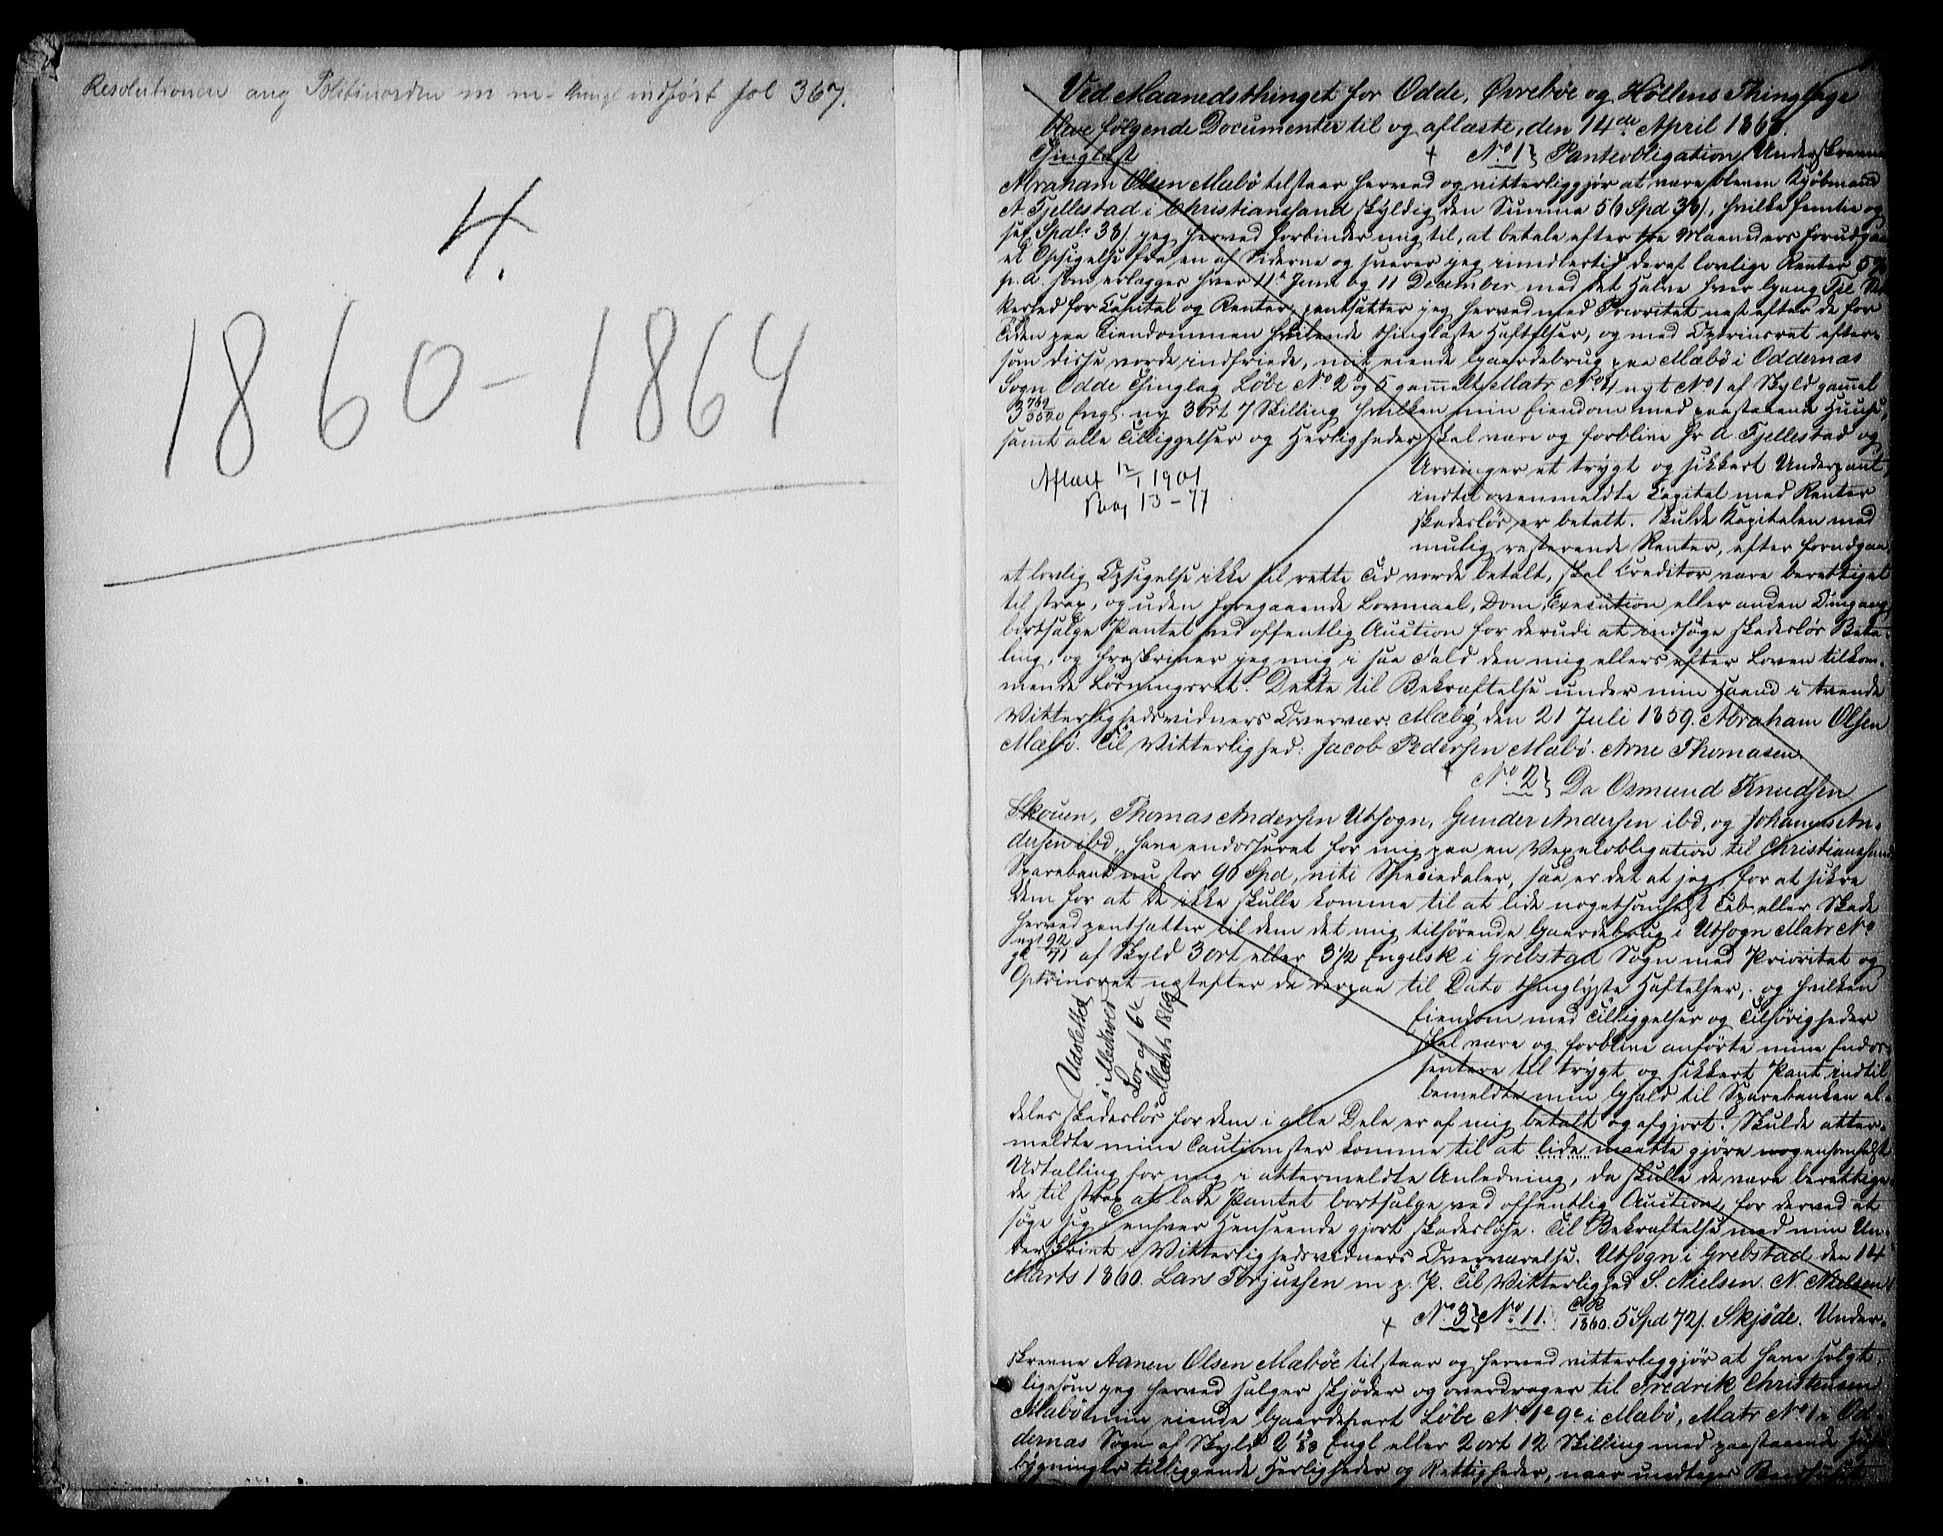 Resolutionen ang Politiuorden m m. thingl indført fol 367.
4.
1860-1864
Ved Maanedsthinget for Odde, Øvrebøe og Høllens Thinglage
bleve følgende Documenter til og aflæste, den 14de April 1860.
Thinglæst
No 1} Panteobligation. Underskrevne
Abraham Olsen Mæbø tilstaar herved og vitterliggjør at være bleven Kjøbmand
A. Fjellestad i Christianssand skyldig den Summa 56 Spd 38/, hvilke femtio og
sex Spdlr 38/ jeg herved forbinder mig til, at betale efter tre Maaneders forudgaa
et Opsigelse fra en af Siderne og svarer jeg imidlertid deraf lovlige Renter 5%
p. a. som erlægges hver 11te Juni og 11 December med det Halve hver Gang. Til Sik
kerhed for Capital og Renter pantsætter jeg herved med Prioritet næst efter de for
Tiden paa Eiendommen hvilende thinglæste Hæftelser, og med Oprinsret efter-
som disse vorde indfriede, mit eiende Gaardebrug paa Mæbø i Oddernæs
Sogn Odde Thinglag Løbe No 2 og 5 gammelt Matr No 4 nyt No 1 af Skyld gammel
Engl. ny 3 ort 7 Skilling hvilken min Eiendom med paastaaende Huuse,
samt alle Tilliggelser og Herligheder skal være og forblive Hr A. Fjellestad og
Aflæst 12/1 1901
Bog 13-77
Arvinger et trygt og sikkert Underpant,
indtil ovenmeldte Capital med Renter
skadesløs er betalt. Skulde Kapitalen med
mulig resterende Renter, efter forudgaa
et lovlig Opsigelse ikke til rette Tid vorde betalt, skal Creditor være berettiget
til strax, og uden foregaaende Lovmaal, Dom, Execution eller anden Omgang
bortsælge Pantet ved offentlig Auction for derudi at indsøge skadesløs Beta-
ling, og fraskriver jeg mig i saa Fald den mig ellers efter Loven tilkom-
mende Løsningsret. Dette til Bekræftelse under min Haand i tvende
Vitterlighedsvidners Overvær. Mæbø den 21 Juli 1859. Abraham Olsen
Mæbø. Til Vitterlighed: Jacob Pedersen Mæbø. Arne Thomasen.
No 2} Da Osmund Knudsen
Skouen, Thomas Andersen Udsogn, Gunder Andersen ibd, og Johannes An-
dersen ibd, have endosseret for mig paa en Vexelobligation til Christianssand
Sparebank nu stor 90 Spd, niti Speciedaler, saa er det at jeg, for at sikre
dem for at de ikke skulle komme til at lide nogetsomhelst Tab eller Skade
herved pantsætter til dem det mig tilhørende Gaardebrug i Udsogn Matr No
nyt 92
gl 71 af Skyld 3 ort eller 3 1/2 Engelsk i Grebstad Sogn med Prioritet og
Oprinsret næstefter de derpaa til Dato thinglyste Hæftelser, og hvilken
Udslettet
i Medhold
Lov af 6te
Marts 1869
Eiendom med Tilliggelser og Tilhørigheder
skal være og forblive anførte mine Endos-
sentere til trygt og sikkert Pant indtil
bemeldte min Gjæld til Sparebanken al-
deles skadesløs for dem i alle Dele er af mig betalt og afgjort. Skulde atter-
meldte mine Cautionister komme til at lide maatte gjøre nogensomhelst
Udtælling for mig i attermeldte Anledning, da skulle de være berettige-
de til strax at lade Pantet bortsælge ved offentlig Auction, for derved at
søge sig i enhver Henseende gjort skadesløse. Til Bekræftelse med min Un-
derskrivt i Vitterlighedsvidners Overværelse. Udsogn i Grebstad den 14
Marts 1860. Lars Torjussen m. p. P. Til Vitterlighed S. Nielsen. N. Nielsen.
No 3} No 11. 1860. 5 Spd 72/. Skjøde. Under-
skrevne Aanen Olsen Mæbøe tilstaar og herved vitterliggjør at have solgt,
ligesom jeg herved sælger skjøder og overdrager til Fredrik Christensen
Mæbø min eiende Gaardepart Løbe No 1e 9e i Mæbø, Matr No 1 i Od-
dernæs Sogn af Skyld Engl eller 2 ort 12 Skilling med paastaaende
bygninger tilliggende Herligheder og Rettigheder, naar undtages